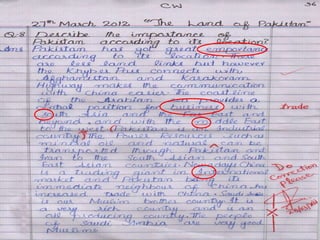 CW
36
27th March 2012 "The Land of Pakistan"
Q.8 Describe the importance of
Pakistan according to its location?
Ans Pakistan has got great
according to its location there
are a lear links but however
the Khyber Pass connects with
Afghanistan and Karakoram
Highway makes the communication
with China easier the coast line
of the Arabian sea provides a
position for business with
trade
South Asia and the Far East and
beyond and with the Middle East
to the west Pakistan is an
country the Power resources such as
mineral oil and natural can be
transported through Pakistan and
Iran to the South Asian and South
East Asian countries Now days China
is a trading giant in International
market and Pakistan being its
immediate neighbour of China has
increased trade with China Saudi
is our Muslim brother country it is
a very rich country and is an
oil producing country the people
of Saudi Arabia are very good
Muslims
Do
Correction
Please